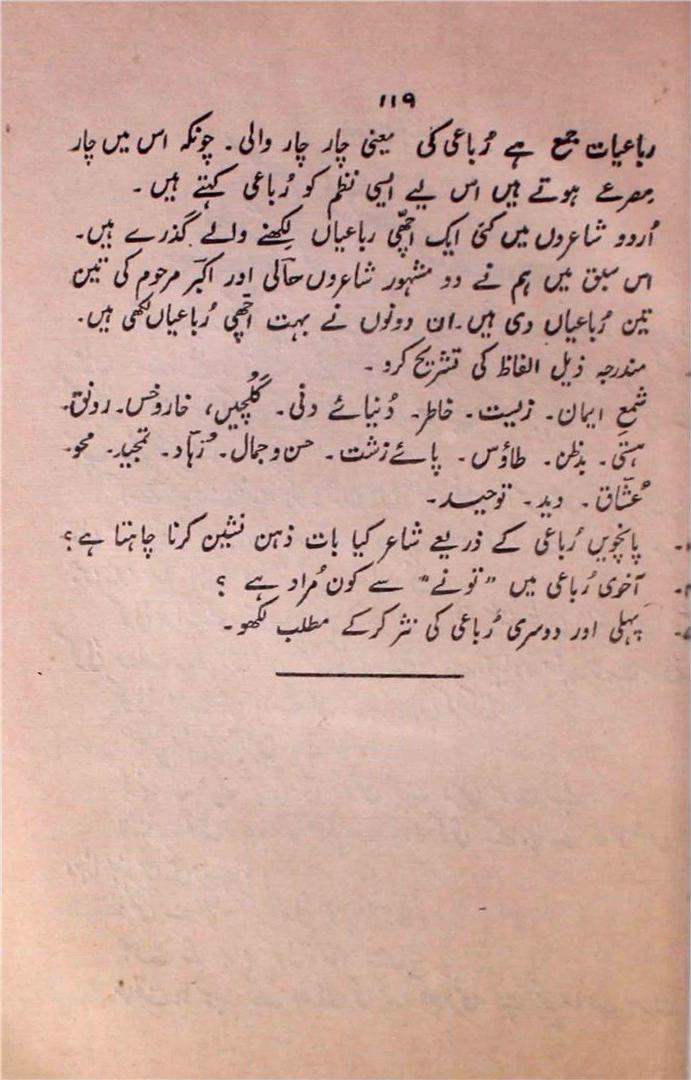 ۱۱۹
رباعیات جمع ہے رُباعی کی یعنی چار چار والی۔ چونکہ اس میں چار
مصرعے ہوتے ہیں اس لیے ایسی نظم کو رُباعی کہتے ہیں۔
اُردو شاعروں میں کئی ایک اچھّی رباعیاں لکھنے والے گذرے ہیں۔
اس سبق میں ہم نے دو مشہور شاعروں حالی اور اکبر مرحوم کی تین
تین رُباعیاں دی ہیں۔ ان دونوں نے بہت اچھّی رُباعیاں لکھی ہیں۔
مندرجہ ذیل الفاظ کی تشریح کرو۔
شمعِ ایمان۔ زیست۔ خاطر۔ دُنیائے دنی۔ گُلچیں، خاروخس۔ رونق۔
ہستی۔ بدظن۔ طاؤس۔ پائے زشت۔ حسن و جمال۔ زُہاد۔ تمجید۔ محو۔
عُشّاق۔ دید۔ توحید۔
پانچویں رُباعی کے ذریعے شاعر کیا بات ذہن نشین کرنا چاہتا ہے؟
آخری رُباعی میں "تونے" سے کون مُراد ہے ؟
پہلی اور دوسری رُباعی کی نثر کرکے مطلب لکھو۔